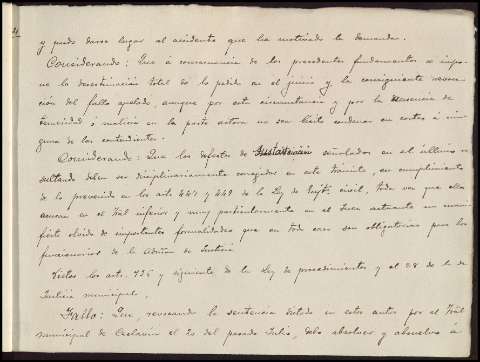 y pudo darse lugar al accidente que ha motivado la demanda.
Considerando: Que a consecuencia de los precedentes fundamentos se impo-
ne la desestimación total de lo pedido en el juicio y la consiguiente revoca-
ción del fallo apelado, aunque por esta circunstancia y por la ausencia de
temeridad ó malicia en la parte actora no sea lícito condenar en costas á nin-
guno de los contendientes.
Considerando: Que los defectos de sustanciación señalados en el último re-
sultando deben ser disciplinariamente corregidos en este trámite, en cumplimiento
de lo prevenido en los arts 447 y 449 de la Ley de civil, toda vez que ellos
acusan en el Tral inferior y muy particularmente en el Juez actuante un mani-
fiesto olvido de importantes formalidades que en todo caso son obligatorias para los
funcionarios de la Admón de Justicia
Vistos los arts. 736 y siguiente de la Ley de procedimientos y el 28 de la de
Justicia municipal.
Fallo: Que, revocando la sentencia dictada en estos autos por el Tral
municipal de Ceclavín el 20 del pasado Julio, debo absolver y absuelvo á